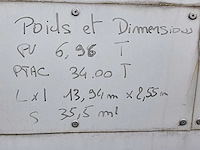 Poids et Dimensions
PV 6,96 T
PTAC 34.00 T
L x l 13,94m x 2,55m
S 35,5 m²